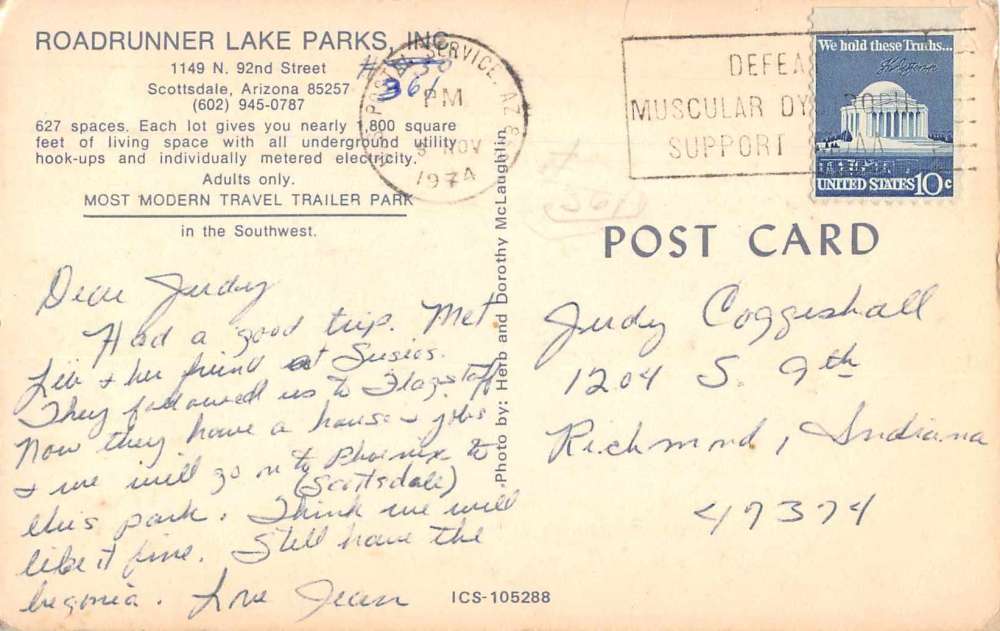 ROADRUNNER LAKE PARKS, INC.
1149 N. 92nd Street
Scottsdale, Arizona 85257
(602) 945-0787
627 spaces. Each lot gives you nearly 1,800 square
feet of living space with all underground utility
hook-ups and individually metered electricity.
Adults only.
MOST MODERN TRAVEL TRAILER PARK
in the Southwest.
361
POSTAL SERVICE, AZ
PM
NOV
1974
DEFEA
MUSCULAR DYSTROPHY
SUPPORT MDAA
We hold these Truths...
UNITED STATES 10c
361
POST CARD
Dear Judy
Had a good trip. Met
Lib + her friend at Susies.
They followed us to Flagstaff
Now they have a house + jobs
+ we will go on to Phoenix to
(Scottsdale)
this park. Think we will
like it fine. Still have the
begonia. Love Jean
Photo by: Herb and Dorothy McLaughlin
Judy Coggeshall
1204 S. 9th
Richmond, Indiana
47374
ICS-105288